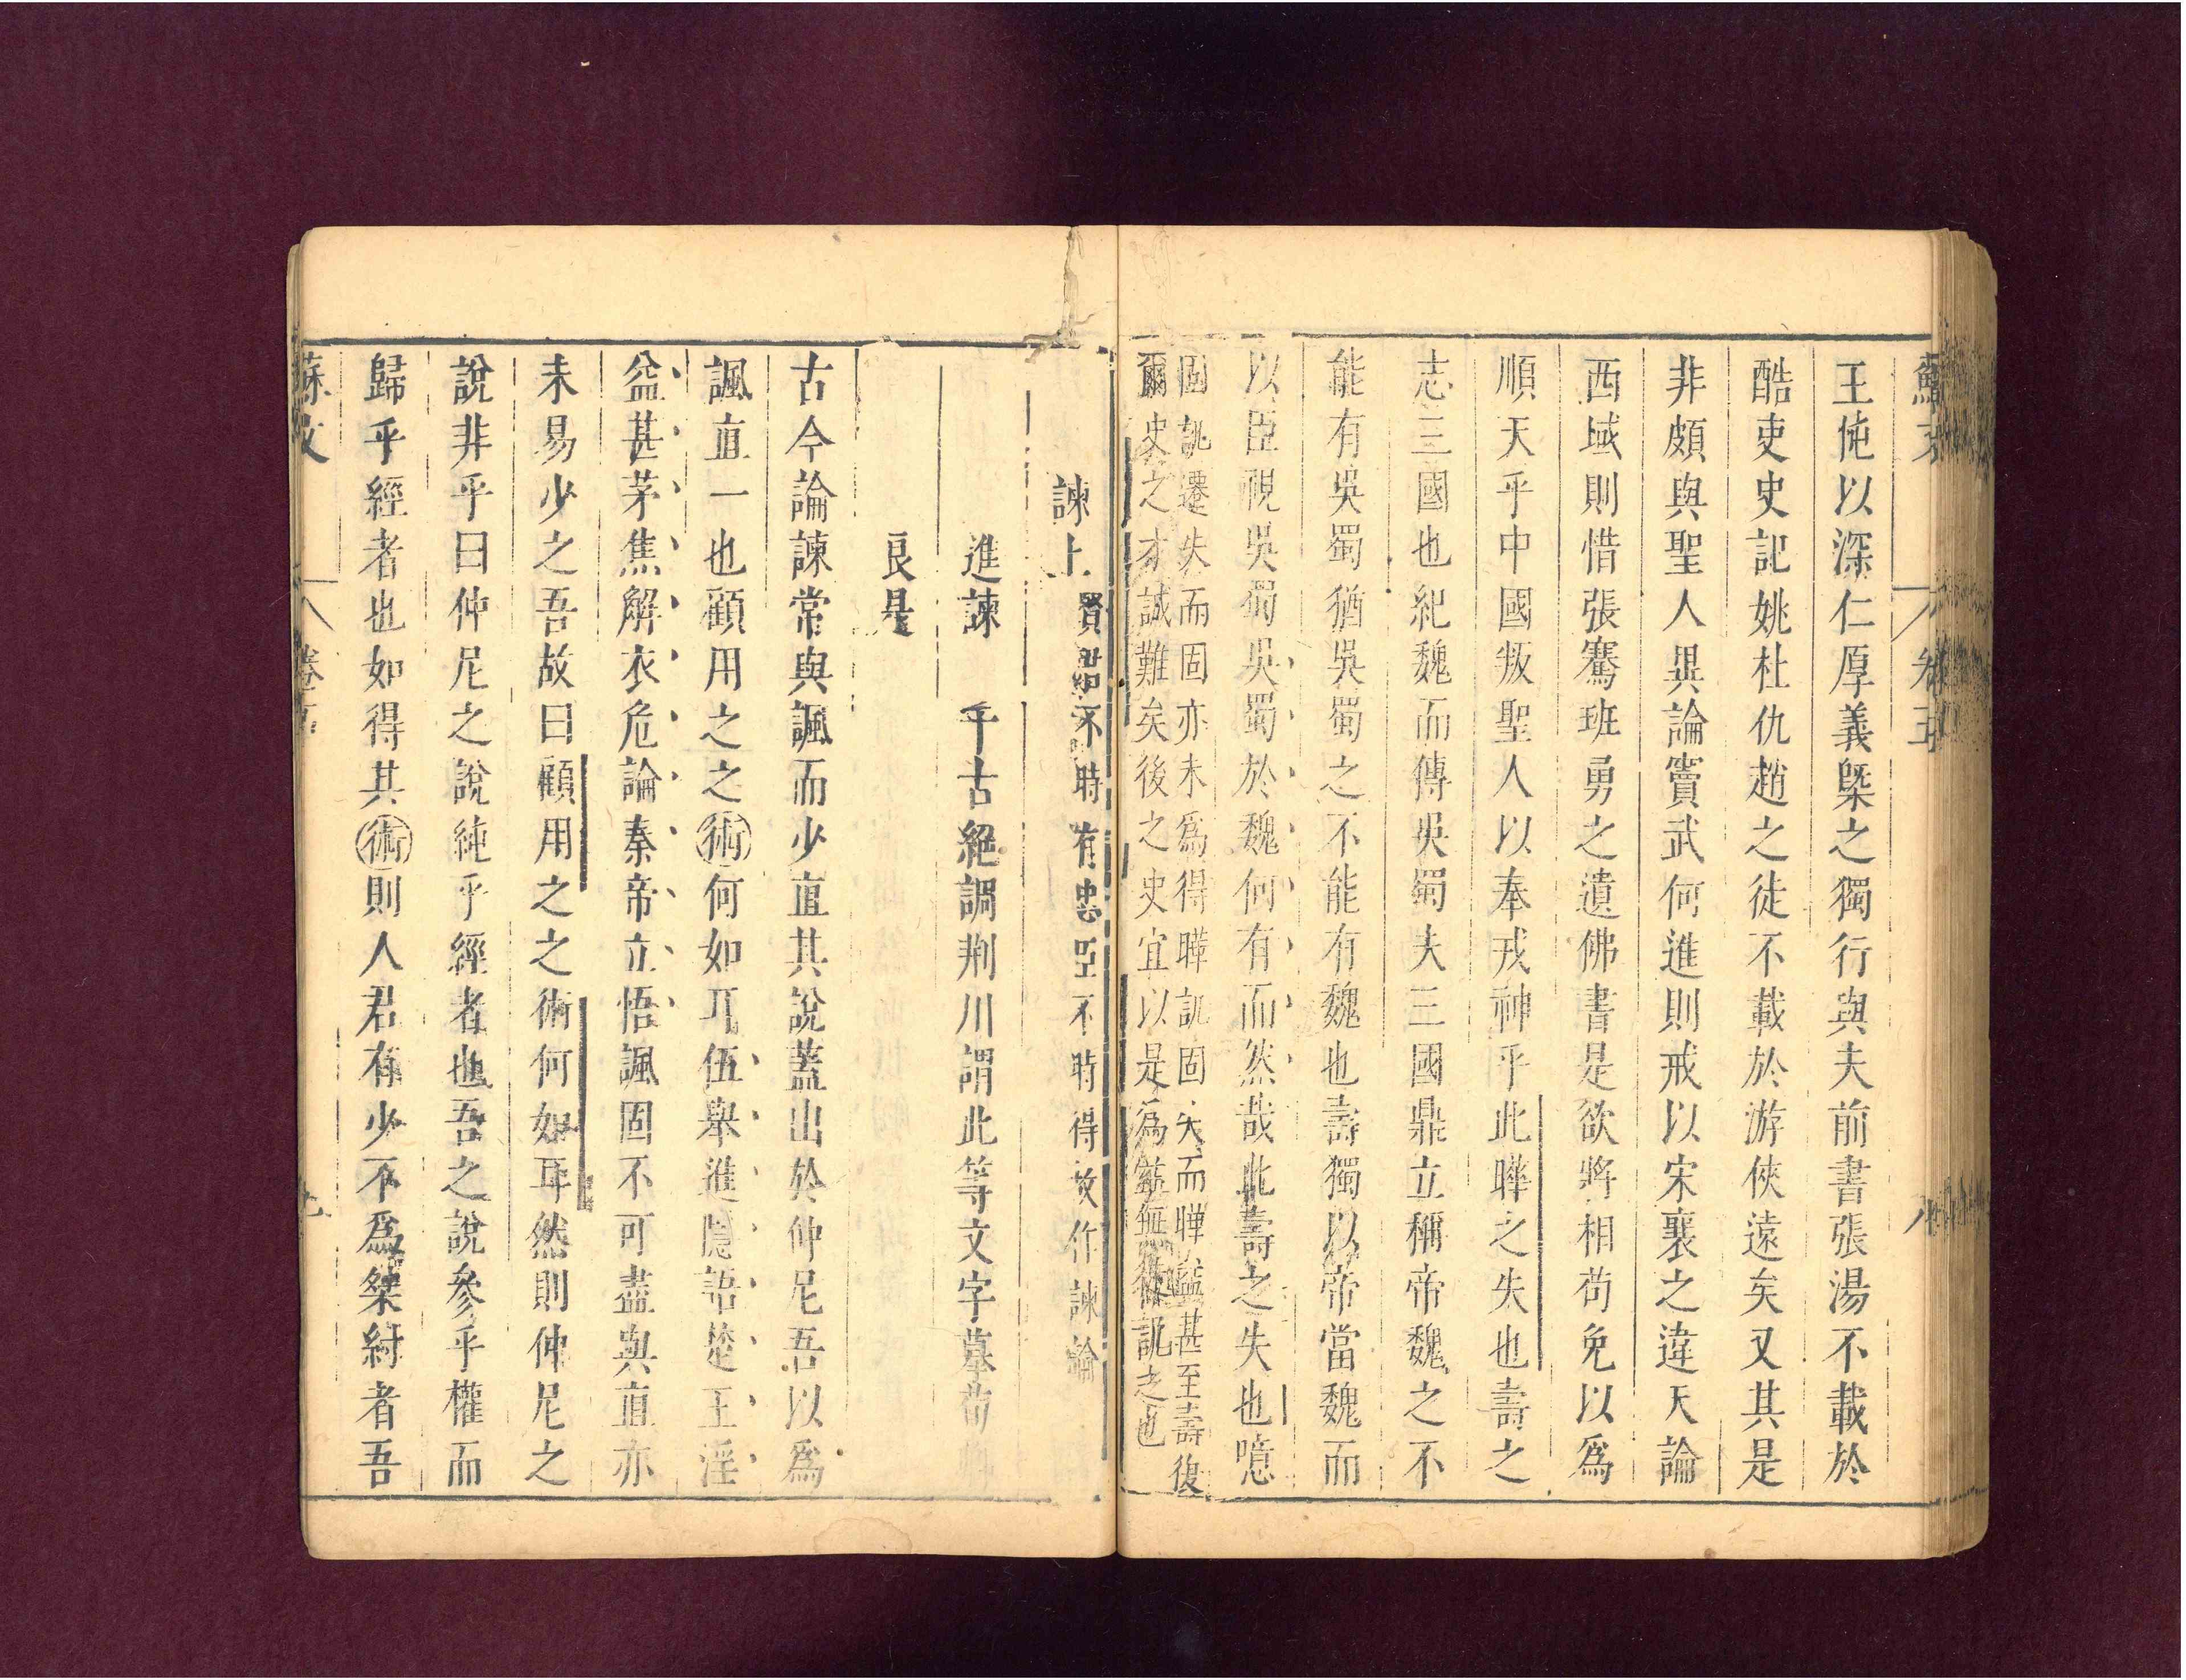 蘇文 卷五 八
王侁以深仁厚義槩之獨行與夫前書張湯不載於
酷吏史記姚杜仇趙之徒不載於游俠遠矣又其是
非頗與聖人異論竇武何進則戒以宋襄之違天論
西域則惜張騫班勇之遺佛書是欲將相苟免以爲
順天乎中國叛聖人以奉戎神乎此曄之失也壽之
志三國也紀魏而傳吳蜀夫三國鼎立稱帝魏之不
能有吳蜀猶吳蜀之不能有魏也壽獨以帝當魏而
以臣視吳蜀吳蜀於魏何有而然哉此壽之失也噫
固譏遷失而固亦未爲得曄譏固失而曄益甚至壽復
爾史之才誠難矣後之史宜以是爲鑑無徒譏之也
諫上 賢君不時有忠臣不時得故作諫論
進諫 千古絕調荆川謂此等文字摹荀
良是
古今論諫常與諷而少直其說蓋出於仲尼吾以爲
諷直一也顧用之之術何如耳伍舉進隱語楚王淫
益甚茅焦解衣危論秦帝立悟諷固不可盡與直亦
未易少之吾故曰顧用之之術何如耳然則仲尼之
說非乎曰仲尼之說純乎經者也吾之說參乎權而
歸乎經者也如得其術則人君有少不爲桀紂者吾
蘇文 卷五 九